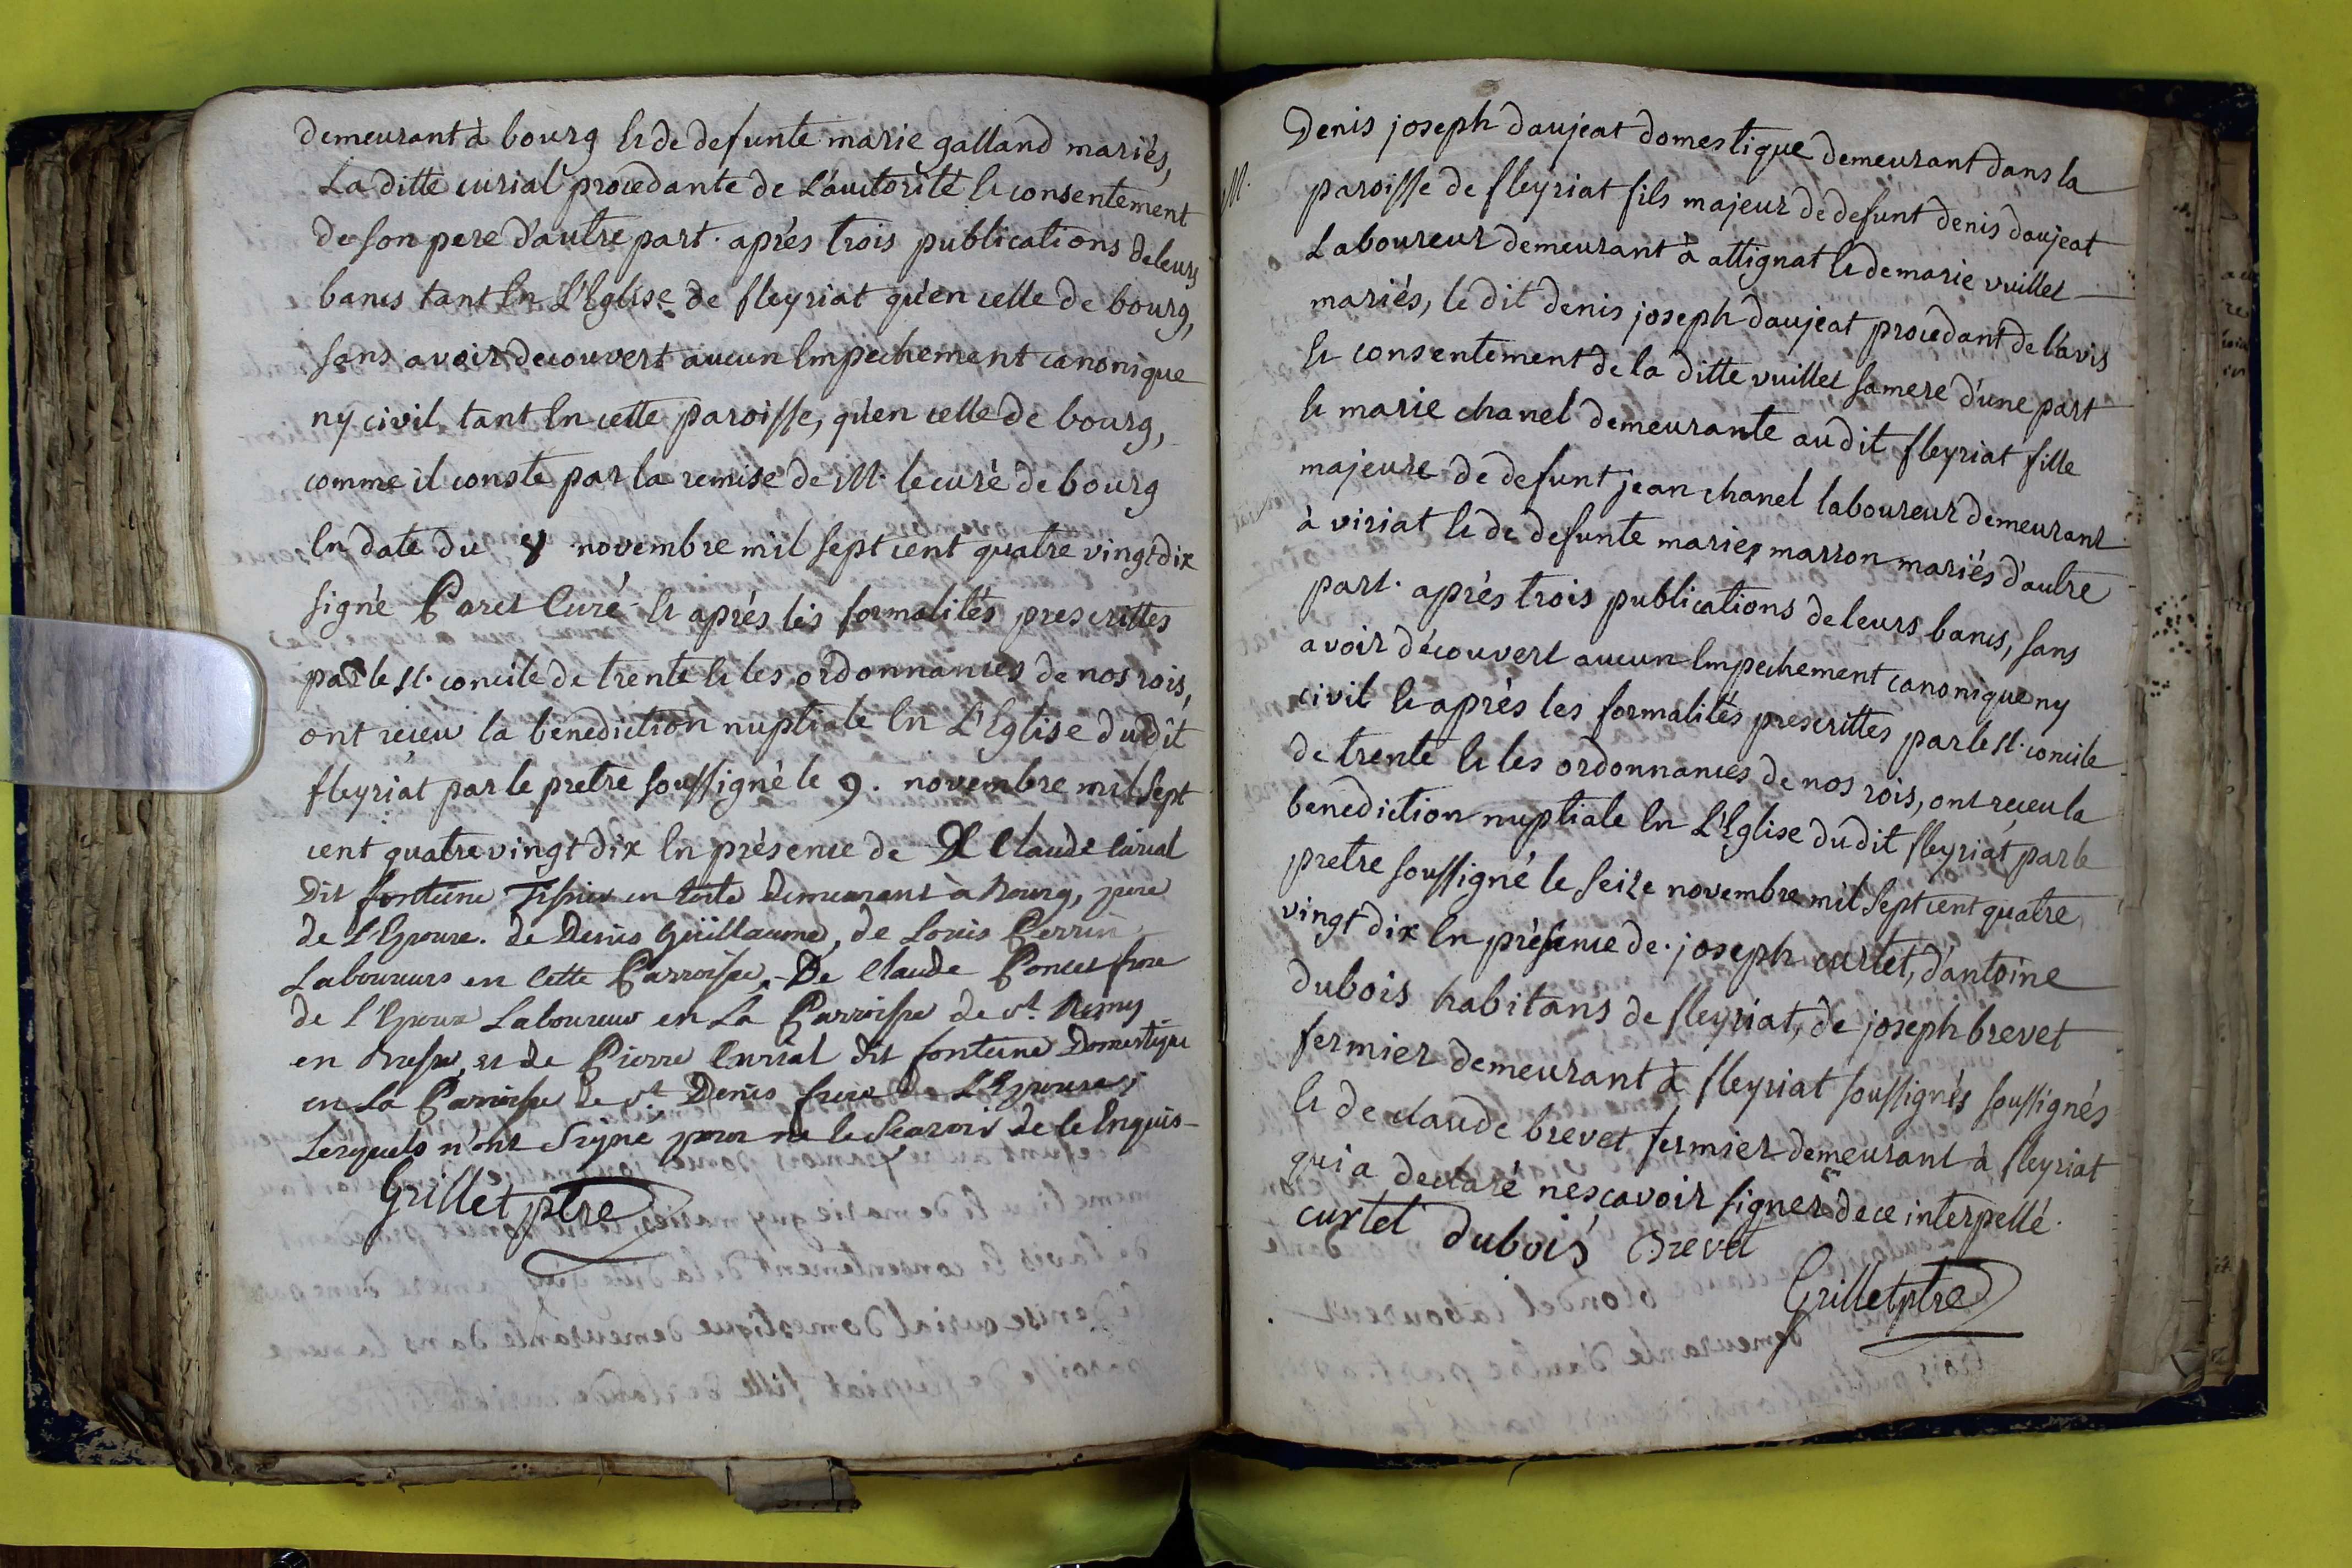 demeurant à bourg et de defunte marie galland mariés,
La ditte curial procedante de L'auctorité et consentement
de son pere d'autre part. aprés trois publications de leurs
bancs tant En L'Eglise de fleyriat qu'en celle de bourg,
sans avoir decouvert aucun Empechement canonique
ny civil, tant En cette paroisse, qu'en celle de bourg,
comme il conste par la remise de M. le curé de bourg
En date du 8 novembre mil sept cent quatre vingt dix
signé Paret Curé et aprés les formalités prescrittes
par le st. concile de trente et les ordonnances de nos rois,
ont reçeu la benediction nuptiale En L'Eglise du dit
fleyriat par le pretre soussigné le 9. novembre mil sept
cent quatre vingt dix En présence de Claude Curial
dit fonteine Tissier en toile demeurant à Bourg, pere
de L'Epouse. de Denis Guillaume, de Louis Perrin
Laboureurs en Cette Parroisse, De Claude Poncet frere
de l'Epoux Laboureur en La Parroisse de st. Remy
en Bresse, et de Pierre Curial dit fonteine Domestique
en La Parroisse de st. Denis frere de L'Epouse;
Lesquels n'ont Signé pour ne le Scavoir de ce Enquis
Grillet ptre
M.
Denis joseph daujeat domestique demeurant dans la
paroisse de fleyriat fils majeur de defunt denis daujeat
Laboureur demeurant à attignat et de marie vuillet
mariés, le dit denis joseph daujeat procedant de l'avis
et consentement de la ditte vuillet sa mere d'une part
et marie chanel demeurante au dit fleyriat fille
majeure de defunt jean chanel laboureur demeurant
à viriat et de defunte marie marron mariés d'autre
part. aprés trois publications de leurs bancs, sans
avoir découvert aucun Empechement canonique ny
civil et aprés les formalités prescrittes par le st. concile
de trente et les ordonnances de nos rois, ont reçeu la
benediction nuptiale En L'Eglise du dit fleyriat par le
pretre soussigné le seize novembre mil sept cent quatre
vingt dix En présence de joseph curtet, d'antoine
dubois habitans de fleyriat, de joseph brevet
fermier demeurant à fleyriat soussignés soussignés
et de claude brevet fermier demeurant à fleyriat
qui a declaré ne scavoir signer de ce interpellé.
curtet dubois Brevet
Grillet ptre